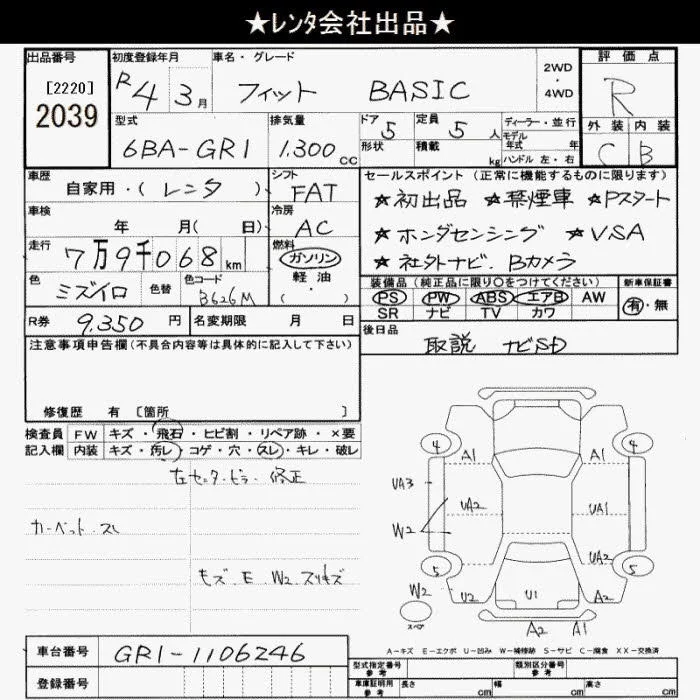 ★ﾚﾝﾀ会社出品★
出品番号
[2220]
2039
初度登録年月
R4 3月
車名・グレード
フィット BASIC
2WD
・
4WD
評価点
R
外装 内装
C B
型式
6BA-GR1
排気量
1.300cc
ドア 5
形状
定員 5人
積載 kg
ディーラー・並行
モデル
年式 年
ハンドル 左・右
車歴
自家用・(レンタ)
シフト
FAT
車検
年 月( 日)
冷房
AC
走行
7万9千068km
燃料
ガソリン
軽油
・( )
色
ミズイロ
色替
色コード
B626M
R券 9.350円
名変期限 月 日
セールスポイント(正常に機能するものに限ります)
★初出品 ★禁煙車 ★Pスタート
★ホンダセンシング ★VSA
★社外ナビ.Bカメラ
装備品(純正品に限り○をつけてください)
PS PW ABS エアB AW
SR ナビ TV カワ
新車保証書
有・無
後日品
取説 ナビSD
注意事項申告欄(不具合内容等は具体的に記入して下さい)
修復歴 有 [箇所 ]
検査員
記入欄
FW キズ・飛石・ヒビ割・リペア跡・×要
内装 キズ・汚レ・コゲ・穴・スレ・キレ・破レ
左センターピラー 修正
カーペット スレ
モズ E W2 スリキズ
4
4
A1
A1
UA3
UA2
UA1
W2
UA2
5
5
W2
U2
U1
A2
スペア
A2 A1
A-キズ E-エクボ U-凹み W-補修跡 S-サビ C-腐食 XX-交換済
車台番号
GR1-1106246
登録番号
型式指定番号
参考
類別区分番号
参考
車庫証明用
参考
長さ cm
幅 cm
高さ cm